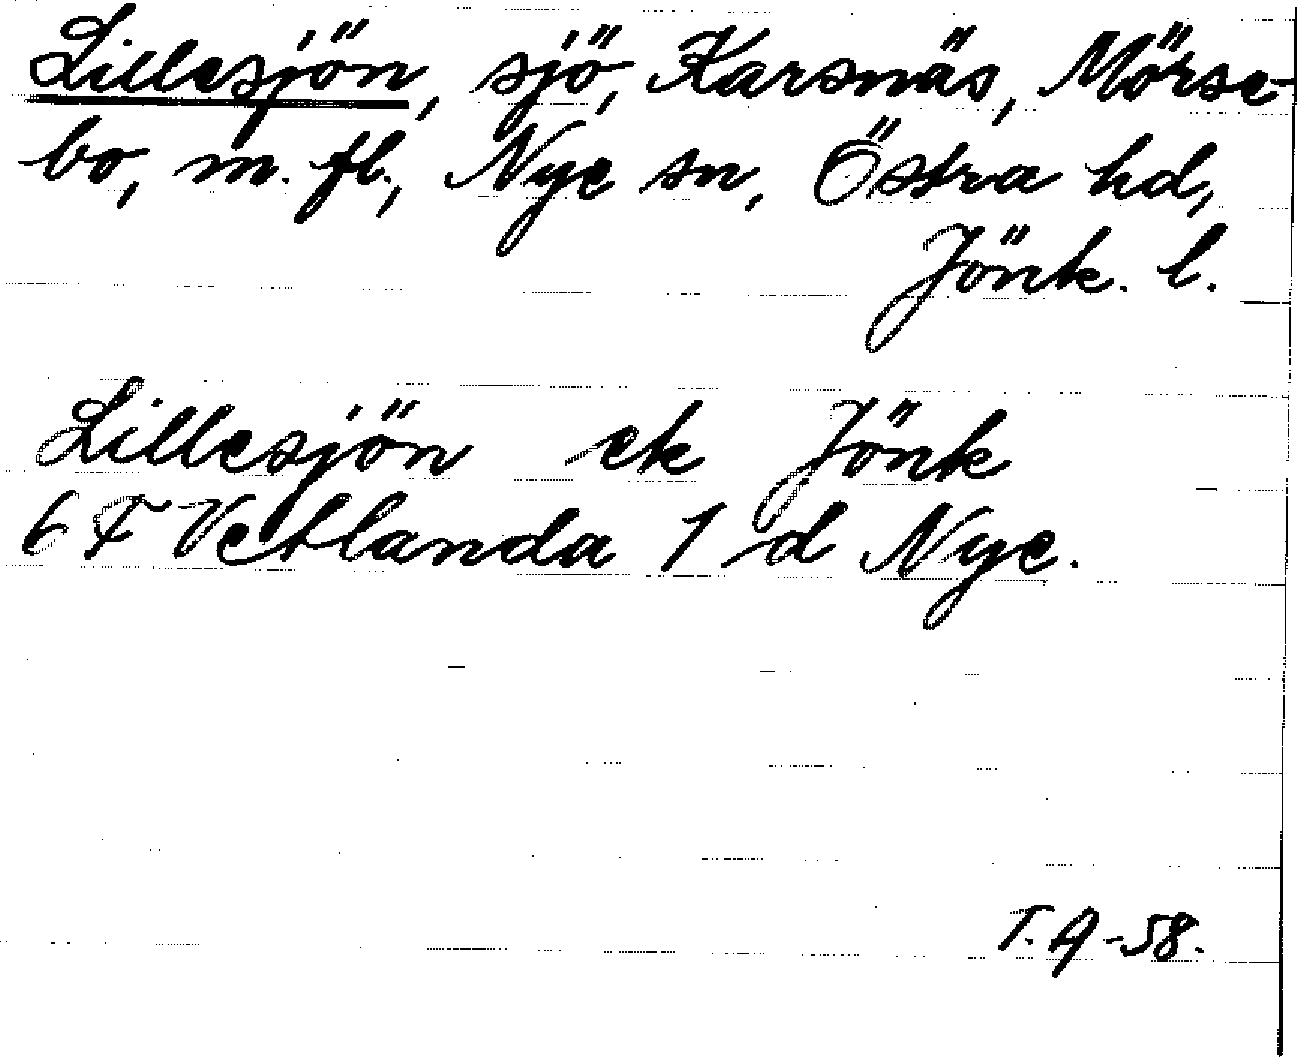 Lillesjön, sjö, Karsnäs, Mörse-
bo, m. fl., Nye sn, Östra hd,
Jönk. l.
Lillesjön ek Jönk
6 F Vetlanda 1 d Nye.
T. A -58.